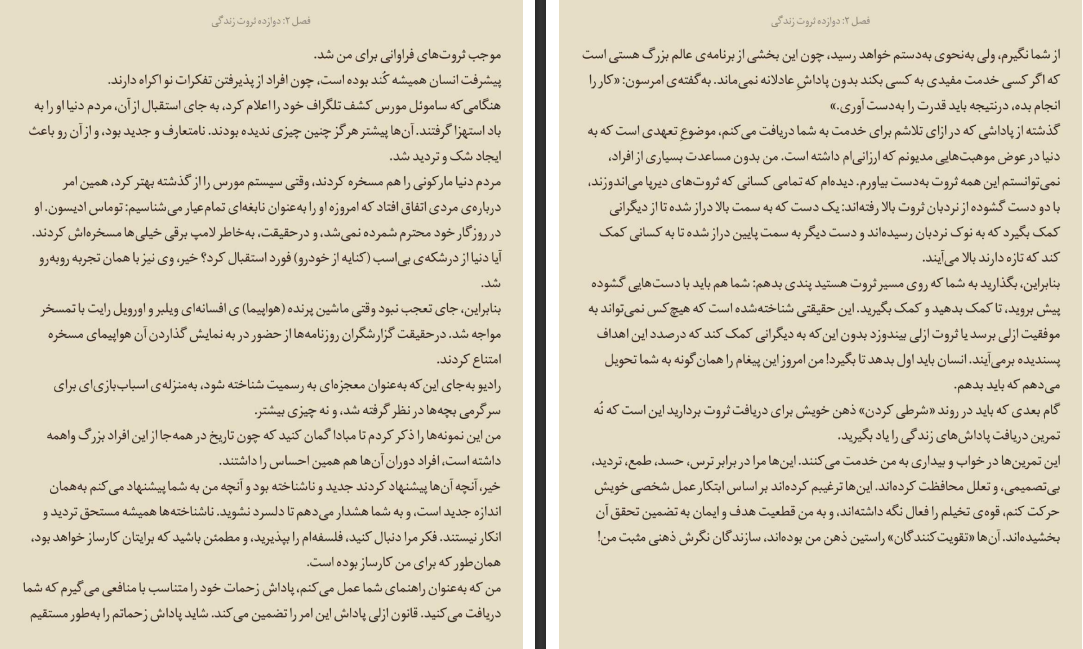 فصل ۲: دوازده ثروت زندگی
موجب ثروت‌های فراوانی برای من شد.
پیشرفت انسان همیشه کُند بوده است، چون افراد از پذیرفتن تفکرات نو اکراه دارند.
هنگامی‌که ساموئل مورس کشف تلگراف خود را اعلام کرد، به جای استقبال از آن، مردم دنیا او را به
باد استهزا گرفتند. آن‌ها پیشتر هرگز چنین چیزی ندیده بودند. نامتعارف و جدید بود، و از آن رو باعث
ایجاد شک و تردید شد.
مردم دنیا مارکونی را هم مسخره کردند، وقتی سیستم مورس را از گذشته بهتر کرد، همین امر
درباره‌ی مردی اتفاق افتاد که امروزه او را به‌عنوان نابغه‌ای تمام‌عیار می‌شناسیم: توماس ادیسون. او
در روزگار خود محترم شمرده نمی‌شد، و درحقیقت، به‌خاطر لامپ برقی خیلی‌ها مسخره‌اش کردند.
آیا دنیا از درشکه‌ی بی‌اسب (کنایه از خودرو) فورد استقبال کرد؟ خیر، وی نیز با همان تجربه روبه‌رو
شد.
بنابراین، جای تعجب نبود وقتی ماشین پرنده (هواپیما) ی افسانه‌ای ویلبر و اورویل رایت با تمسخر
مواجه شد. درحقیقت گزارشگران روزنامه‌ها از حضور در به نمایش گذاردن آن هواپیمای مسخره
امتناع کردند.
رادیو به‌جای این‌که به‌عنوان معجزه‌ای به رسمیت شناخته شود، به‌منزله‌ی اسباب‌بازی‌ای برای
سرگرمی بچه‌ها در نظر گرفته شد، و نه چیزی بیشتر.
من این نمونه‌ها را ذکر کردم تا مبادا گمان کنید که چون تاریخ در همه‌جا از این افراد بزرگ واهمه
داشته است، افراد دوران آن‌ها هم همین احساس را داشتند.
خیر، آنچه آن‌ها پیشنهاد کردند جدید و ناشناخته بود و آنچه من به شما پیشنهاد می‌کنم به‌همان
اندازه جدید است، و به شما هشدار می‌دهم تا دلسرد نشوید. ناشناخته‌ها همیشه مستحق تردید و
انکار نیستند. فکر مرا دنبال کنید، فلسفه‌ام را بپذیرید، و مطمئن باشید که برایتان کارساز خواهد بود،
همان‌طور که برای من کارساز بوده است.
من که به‌عنوان راهنمای شما عمل می‌کنم، پاداش زحمات خود را متناسب با منافعی می‌گیرم که شما
دریافت می‌کنید. قانون ازلی پاداش این امر را تضمین می‌کند. شاید پاداش زحماتم را به‌طور مستقیم
فصل ۲: دوازده ثروت زندگی
از شما نگیرم، ولی به‌نحوی به‌دستم خواهد رسید، چون این بخشی از برنامه‌ی عالم بزرگ هستی است
که اگر کسی خدمت مفیدی به کسی بکند بدون پاداشِ عادلانه نمی‌ماند. به‌گفته‌ی امرسون: «کار را
انجام بده، درنتیجه باید قدرت را به‌دست آوری.»
گذشته از پاداشی که در ازای تلاشم برای خدمت به شما دریافت می‌کنم، موضوعِ تعهدی است که به
دنیا در عوض موهبت‌هایی مدیونم که ارزانی‌ام داشته است. من بدون مساعدت بسیاری از افراد،
نمی‌توانستم این همه ثروت به‌دست بیاورم. دیده‌ام که تمامی کسانی که ثروت‌های دیرپا می‌اندوزند،
با دو دست گشوده از نردبان ثروت بالا رفته‌اند: یک دست که به سمت بالا دراز شده تا از دیگرانی
کمک بگیرد که به نوک نردبان رسیده‌اند و دست دیگر به سمت پایین دراز شده تا به کسانی کمک
کند که تازه دارند بالا می‌آیند.
بنابراین، بگذارید به شما که روی مسیر ثروت هستید پندی بدهم: شما هم باید با دست‌هایی گشوده
پیش بروید، تا کمک بدهید و کمک بگیرید. این حقیقتی شناخته‌شده است که هیچ‌کس نمی‌تواند به
موفقیت ازلی برسد یا ثروت ازلی بیندوزد بدون این‌که به دیگرانی کمک کند که درصدد این اهداف
پسندیده برمی‌آیند. انسان باید اول بدهد تا بگیرد! من امروز این پیغام را همان‌گونه به شما تحویل
می‌دهم که باید بدهم.
گام بعدی که باید در روند «شرطی کردن» ذهن خویش برای دریافت ثروت بردارید این است که نُه
تمرین دریافت پاداش‌های زندگی را یاد بگیرید.
این تمرین‌ها در خواب و بیداری به من خدمت می‌کنند. این‌ها مرا در برابر ترس، حسد، طمع، تردید،
بی‌تصمیمی، و تعلل محافظت کرده‌اند. این‌ها ترغیبم کرده‌اند بر اساس ابتکار عمل شخصی خویش
حرکت کنم، قوه‌ی تخیلم را فعال نگه داشته‌اند، و به من قطعیت هدف و ایمان به تضمین تحقق آن
بخشیده‌اند. آن‌ها «تقویت‌کنندگان» راستین ذهن من بوده‌اند، سازندگان نگرش ذهنی مثبت من!